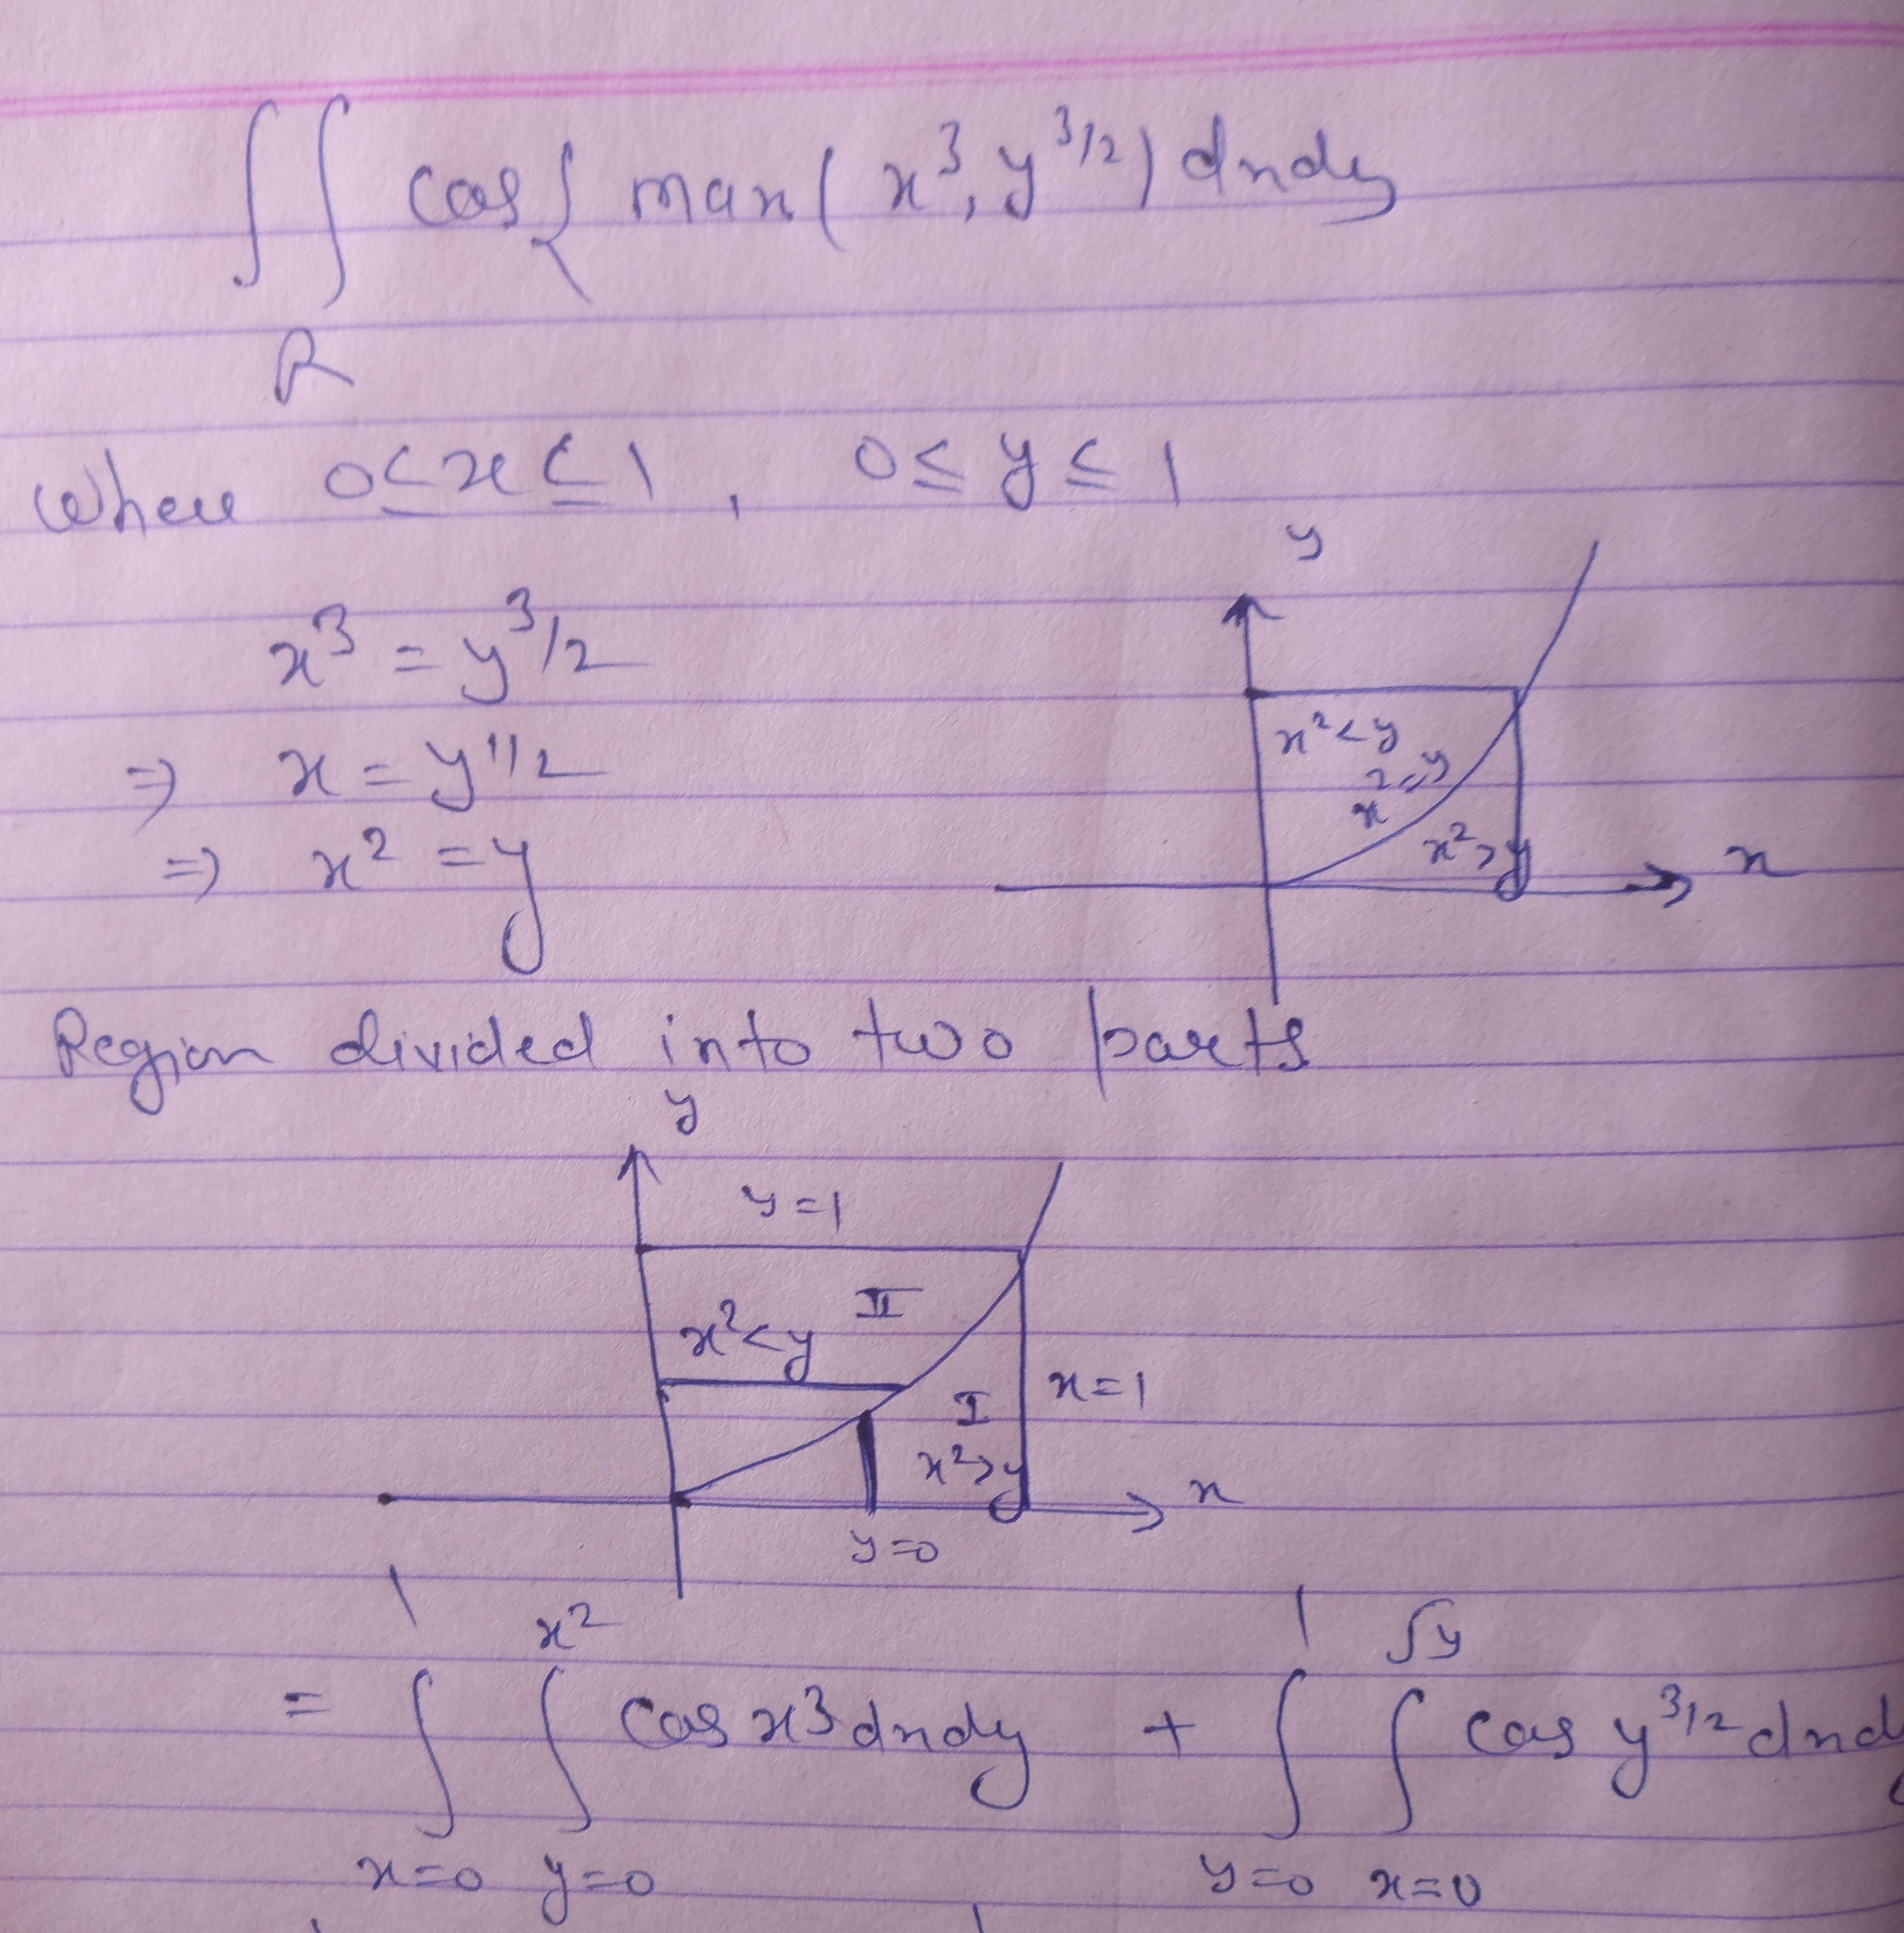 ∫∫ cos{ max( x³, y^3/2) dxdy
R
where 0≤x≤1, 0≤y≤1
y
x³ = y^3/2
⇒ x = y^1/2
⇒ x² = y
x²<y
x²=y
x²>y
x
Region divided into two parts
y
y=1
II
x²<y
x=1
I
x²>y
x
y=0
1 x² 1 √y
= ∫ ∫ cos x³ dxdy + ∫ ∫ cos y^3/2 dxdy
x=0 y=0 y=0 x=0